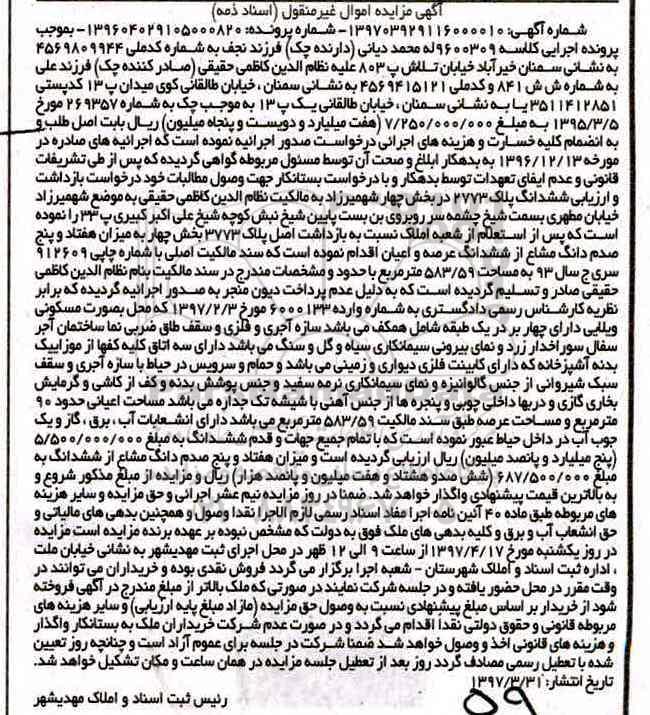 آگهی مزایده اموال غیرمنقول (اسناد ذمه)
شماره آگهی: ۱۳۹۷۰۳۹۲۹۱۱۶۰۰۰۰۱۰- شماره پرونده: ۱۳۹۶۰۴۰۲۹۱۰۵۰۰۰۸۲۰- بموجب
پرونده اجرایی کلاسه ۹۶۰۰۳۰۹له محمد دیانی (دارنده چک) فرزند نجف به شماره کدملی ۴۵۶۹۸۰۹۹۴۴
به نشانی سمنان خیرآباد خیابان تلاش پ ۸۰۳ علیه نظام الدین کاظمی حقیقی (صادر کننده چک) فرزند علی
به شماره ش ش ۸۴۱ و کدملی ۴۵۶۹۴۱۵۱۲۱ به نشانی سمنان ، خیابان طالقانی کوی میدان پ ۱۳ کدپستی
۳۵۱۱۴۱۲۸۵۱ یا به نشانی سمنان ، خیابان طالقانی یک پ ۱۳ به موجب چک به شماره ۲۶۹۳۵۷ مورخ
۱۳۹۵/۳/۵ به مبلغ ۷/۲۵۰/۰۰۰/۰۰۰ (هفت میلیارد و دویست و پنجاه میلیون) ریال بابت اصل طلب و
به انضمام کلیه خسارت و هزینه های اجرائی درخواست صدور اجرائیه نموده است که اجرائیه های صادره در
مورخه ۱۳۹۶/۱۲/۱۳ به بدهکار ابلاغ و صحت آن توسط مسئول مربوطه گواهی گردیده که پس از طی تشریفات
قانونی و عدم ایفای تعهدات توسط بدهکار و با درخواست بستانکار جهت وصول مطالبات خود درخواست بازداشت
و ارزیابی ششدانگ پلاک ۲۷۷۳ در بخش چهار شهمیرزاد به مالکیت نظام الدین کاظمی حقیقی به موضع شهمیرزاد
خیابان مطهری بسمت شیخ چشمه سر روبروی بن بست پایین شیخ نبش کوچه شیخ علی اکبر کبیری پ ۳۳ را نموده
است که پس از استعلام از شعبه املاک نسبت به بازداشت اصل پلاک ۳۷۷۳ بخش چهار به میزان هفتاد و پنج
صدم دانگ مشاع از ششدانگ عرصه و اعیان اقدام نموده است که سند مالکیت اصلی با شماره چاپی ۹۱۲۶۰۹
سری ج سال ۹۳ به مساحت ۵۸۳/۵۹ مترمربع با حدود و مشخصات مندرج در سند مالکیت بنام نظام الدین کاظمی
حقیقی صادر و تسلیم گردیده است که به دلیل عدم پرداخت دیون منجر به صدور اجرائیه گردیده که برابر
نظریه کارشناس رسمی دادگستری به شماره وارده ۶۰۰۰۱۳۳ مورخ ۱۳۹۷/۲/۳ که محل بصورت مسکونی
ویلایی دارای چهار بر در یک طبقه شامل همکف می باشد سازه آجری و فلزی و سقف طاق ضربی نما ساختمان آجر
سفال سوراخدار زرد و نمای بیرونی سیمانکاری سیاه و گل و سنگ می باشد دارای سه اتاق کلیه کفها از موزاییک
بدنه آشپزخانه که دارای کابینت فلزی دیواری و زمینی می باشد و حمام و سرویس در حیاط با سازه آجری و سقف
سبک شیروانی از جنس گالوانیزه و نمای سیمانکاری نرمه سفید و جنس پوشش بدنه و کف از کاشی و گرمایش
بخاری گازی و دربها داخلی چوبی و پنجره ها از جنس آهنی با شیشه تک جداره می باشد مساحت اعیانی حدود ۹۰
مترمربع و مساحت عرصه طبق سند مالکیت ۵۸۳/۵۹ مترمربع می باشد دارای انشعابات آب ، برق ، گاز و یک
جوب آب در داخل حیاط عبور نموده است که با تمام جمیع جهات و قدم ششدانگ به مبلغ ۵/۵۰۰/۰۰۰/۰۰۰
(پنج میلیارد و پانصد میلیون) ریال ارزیابی گردیده است و میزان هفتاد و پنج صدم دانگ مشاع از ششدانگ به
مبلغ ۶۸۷/۵۰۰/۰۰۰ (شش صدو هشتاد و هفت میلیون و پانصد هزار) ریال و مزایده از مبلغ مذکور شروع و
به بالاترین قیمت پیشنهادی واگذار خواهد شد. ضمنا در روز مزایده نیم عشر اجرائی و حق مزایده و سایر هزینه
های مربوطه طبق ماده ۴۰ آئین نامه اجرا مفاد اسناد رسمی لازم الاجرا نقدا وصول و همچنین بدهی های مالیاتی و
حق انشعاب آب و برق و کلیه بدهی های ملک فوق به دولت که مشخص نبوده بر عهده برنده مزایده است مزایده
در روز یکشنبه مورخ ۱۳۹۷/۴/۱۷ از ساعت ۹ الی ۱۲ ظهر در محل اجرای ثبت مهدیشهر به نشانی خیابان ملت
، اداره ثبت اسناد و املاک شهرستان - شعبه اجرا برگزار می گردد فروش نقدی بوده و خریداران می توانند در
وقت مقرر در محل حضور یافته و در جلسه شرکت نمایند در صورتی که ملک بالاتر از مبلغ مندرج در آگهی فروخته
شود از خریدار بر اساس مبلغ پیشنهادی نسبت به وصول حق مزایده (مازاد مبلغ پایه ارزیابی) و سایر هزینه های
مربوطه قانونی و حقوق دولتی نقدا اقدام می گردد و در صورت عدم شرکت خریداران ملک به بستانکار واگذار
و هزینه های قانونی اخذ و وصول خواهد شد ضمنا شرکت در جلسه برای عموم آزاد است و چنانچه روز تعیین
شده با تعطیل رسمی مصادف گردد روز بعد از تعطیل جلسه مزایده در همان ساعت و مکان تشکیل خواهد شد.
تاریخ انتشار: ۱۳۹۷/۳/۳۱
رئیس ثبت اسناد و املاک مهدیشهر
۵۹